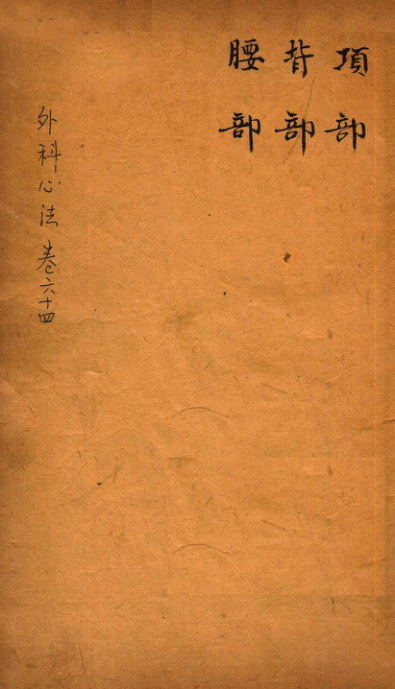 項部
背部
腰部
外科心法 卷六十四